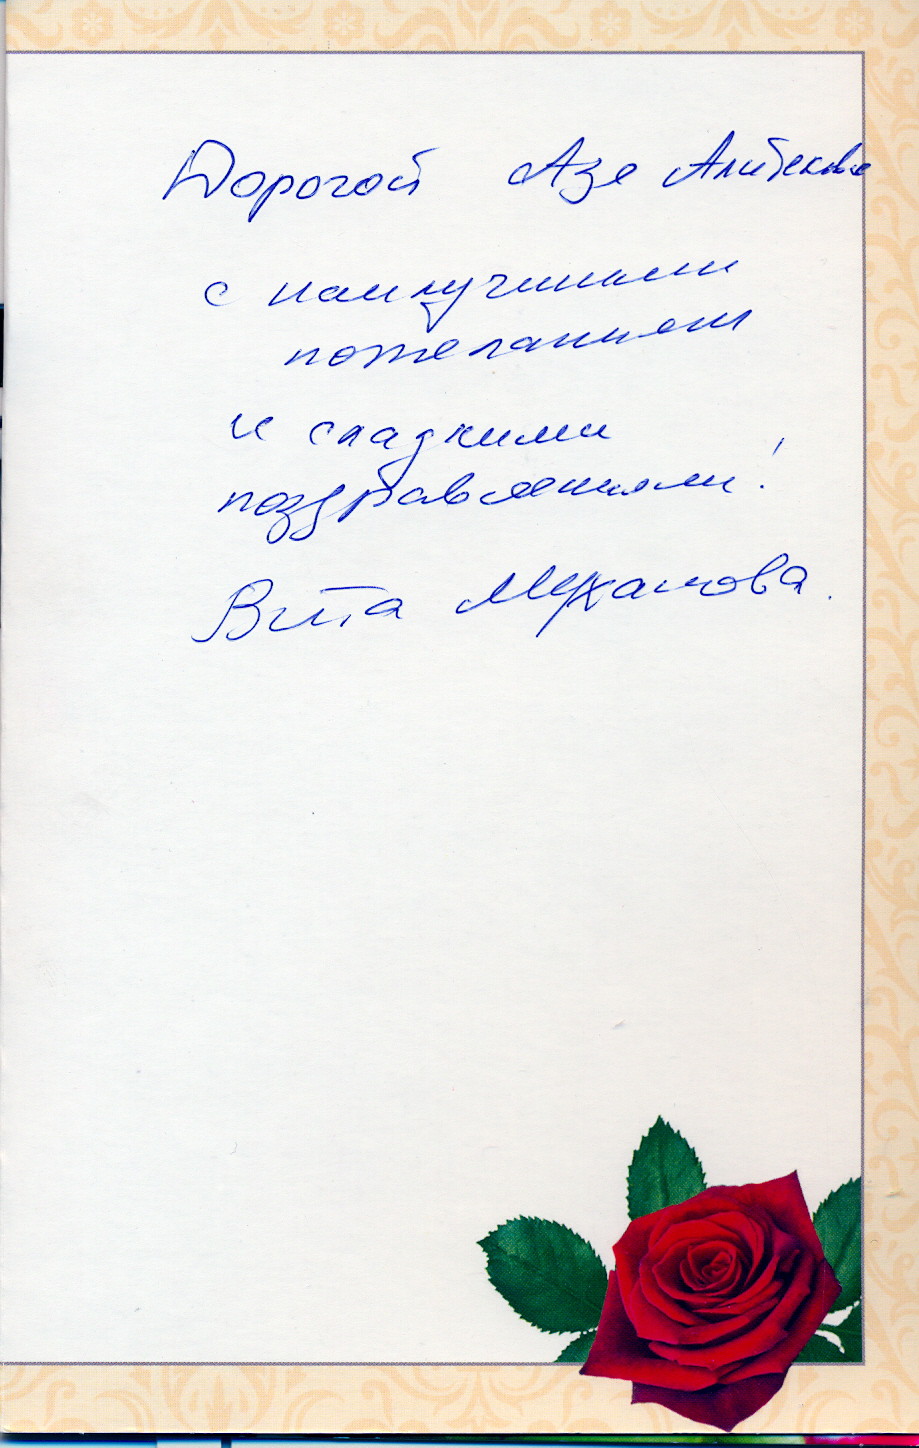 Дорогой Азе Алибековне
с наилучшими
пожеланиями
и сладкими
поздравлениями!
Вита Муханова.